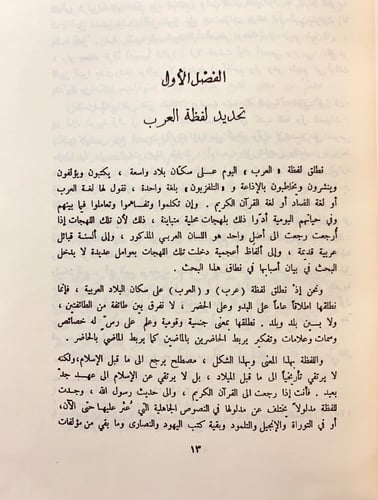 الفصل الأول
تحديد لفظة العرب
نطلق لفظة « العرب » اليوم على سكان بلاد واسعة ، يكتبون ويؤلفون
وينشرون ويخاطبون بالإذاعة و « التلفزيون » بلغة واحدة ، نقول لها لغة العرب
أو لغة الضاد أو لغة القرآن الكريم . وإن تكلموا وتفاهموا وتعاملوا فيما بينهم
وفي حياتهم اليومية أدّوا ذلك بلهجات محلية متباينة ، ذلك لأن تلك اللهجات إذا
أرجعت رجعت الى أصل واحد هو اللسان العربي المذكور ، وإلى ألسنة قبائل
عربية قديمة ، وإلى ألفاظ أعجمية دخلت تلك اللهجات بعوامل عديدة لا يدخل
البحث في بيان أسبابها في نطاق هذا البحث .
ونحن إذ نطلق لفظة ( عرب ) و ( العرب ) على سكان البلاد العربية ، فإنما
نطلقها إطلاقاً عاماً على البدو وعلى الحضر ، لا نفرق بين طائفة من الطائفتين ،
ولا بين بلد وبلد . نطلقها بمعنى جنسية وقومية وعلم على رسّ له خصائص
وسمات وعلامات وتفكير يربط الحاضرين بالماضين كما يربط الماضي بالحاضر .
واللفظة بهذا المعنى وبهذا الشكل ، مصطلح يرجع الى ما قبل الإسلام،ولكنه
لا يرتقي تأريخياً الى ما قبل الميلاد ، بل لا يرتقي عن الإسلام الى عهد جدّ
بعيد . فأنت إذا رجعت الى القرآن الكريم ، والى حديث رسول الله ، وجدت
للفظة مدلولاً يختلف عن مدلولها في النصوص الجاهلية التي عُثر عليها حتى الآن،
أو في التوراة والإنجيل والتلمود وبقية كتب اليهود والنصارى وما بقي من مؤلفات
١٣